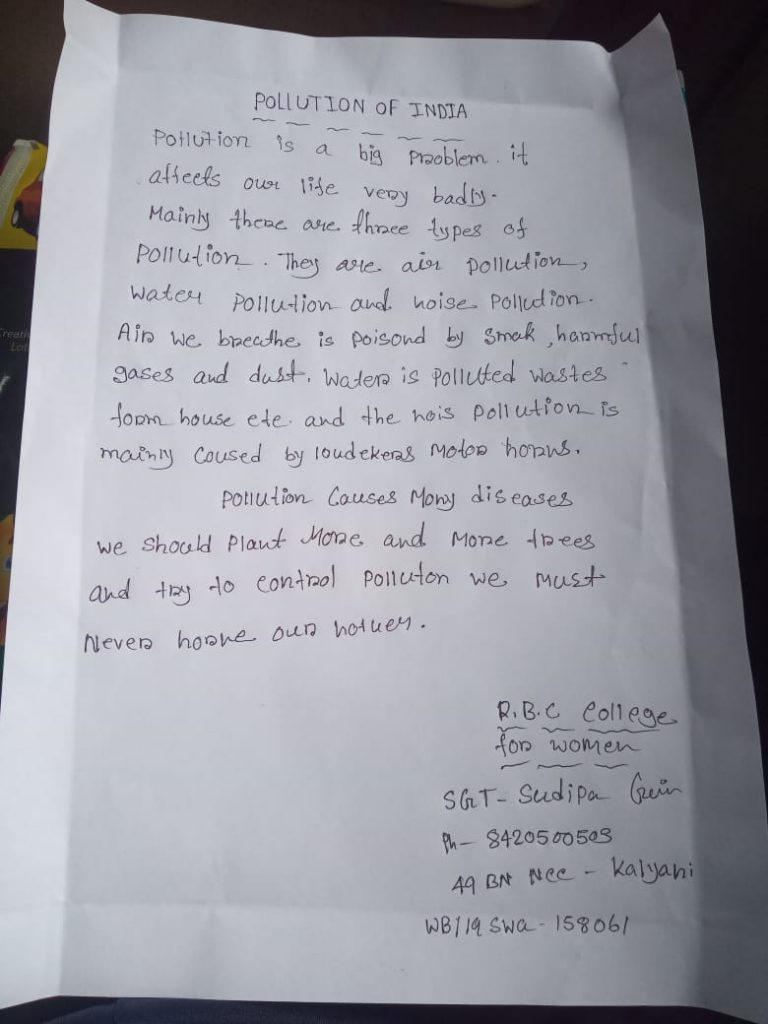 POLLUTION OF INDIA
Pollution is a big problem. it
affects our life very badly.
Mainly there are three types of
Pollution. They are air pollution,
Water pollution and noise Pollution.
Air we breathe is poisond by smok, harmful
gases and dust. Water is Pollutted wastes
form house etc. and the nois pollution is
mainly Coused by loudekers Motor horns.
Pollution Causes Many diseases
we should Plant More and More trees
and try to control Polluton we must
Never horne our notuer.
R.B.C College
for women
SGT- Sudipa Guin
Ph- 8420500503
49 BN Ncc - Kalyani
WB/19 SWA - 158061
Creati